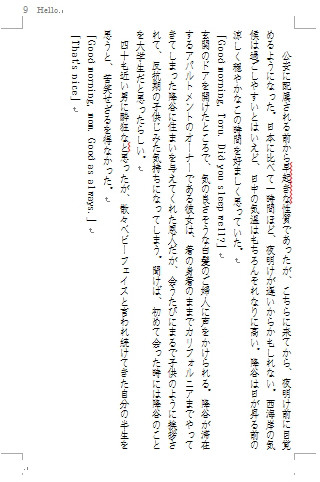 9　Hello.
　公安に配属される前から早起きな性質であったが、こちらに来てから、夜明け前に目覚
めるようになった。日本に比べて一時間ほど、夜明けが遅いからかもしれない。西海岸の気
候は過ごしやすいとはいえど、日中の気温はもちろんそれなりに高い。降谷は日が昇る前の
涼しく穏やかなこの時間を好ましく思っていた。
「Good morning, Toru. Did you sleep well?」
玄関のドアを開けたところで、気の良さそうな白髪のご婦人に声をかけられる。降谷が滞在
するアパルトメントのオーナーである彼女は、着の身着のままでカリフォルニアまでやって
きてしまった降谷に住まいを与えてくれた恩人だが、会うたびにまるで子供のように挨拶さ
れて、反抗期の子供じみた気持ちになってしまう。聞けば、初めて会った時には降谷のこと
を大学生だと思ったらしい。
　四十も近い男に酔狂なと思ったが、散々ベビーフェイスと言われ続けてきた自分の半生を
思うと、苦笑せざるを得なかった。
「Good morning, mom. Good as always.」
「That's nice」